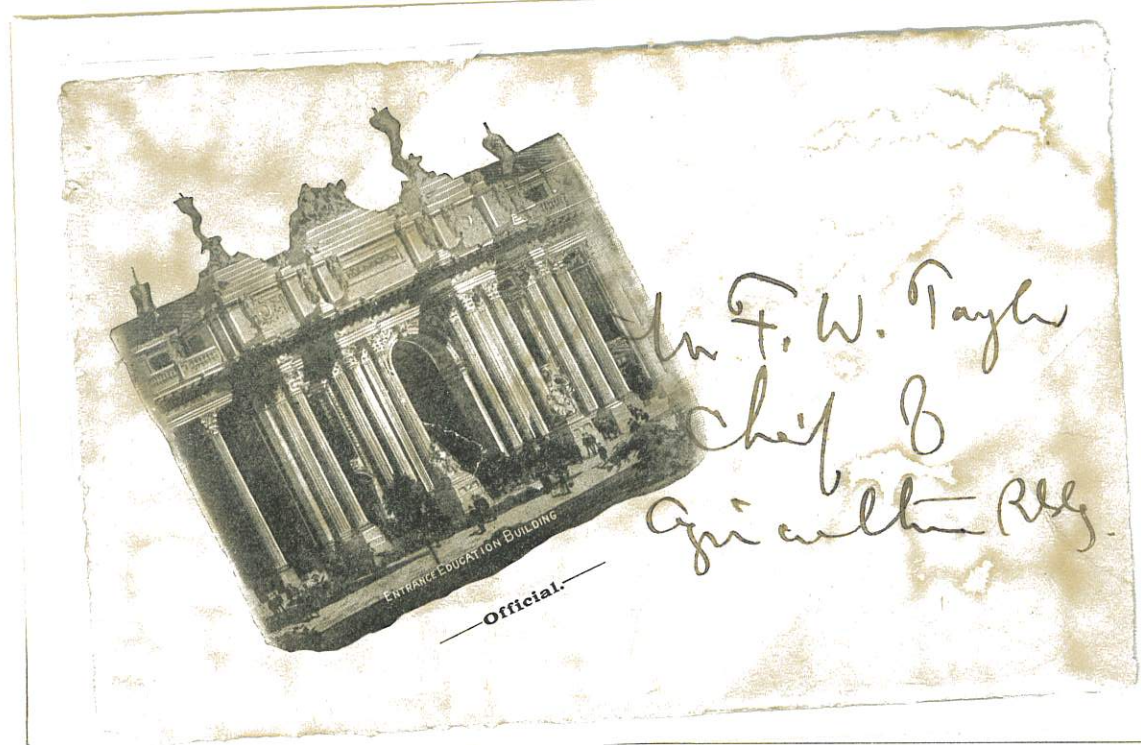 ENTRANCE EDUCATION BUILDING
Official.
Mr F. W. Taylor
Chief of
Agriculture Bldg.